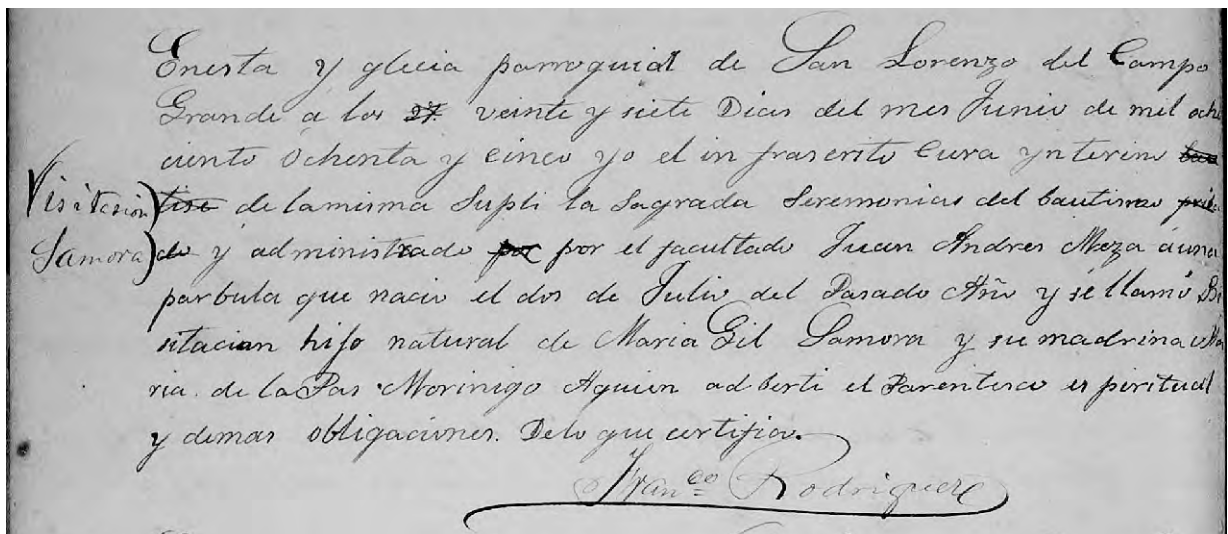 Enesta y glecia parroquial de San Lorenzo del Campo
Grande á los 27 veinte y siete Dias del mes Junio de mil ocho
ciento Ochenta y Cinco yo el in frascrito Cura ynterino bau
Visitasion) tisé de lamisma Supli la Sagrada Seremonias del bautismo
Samora) do y administrado por por el facultado Juan Andres Meza áuna
parbula que nacio el dos de Julio del Pasado Año y se llamó Bi
sitacion hijo natural de Maria Gil Samora y su madrina Ma
ria de la Pas Morinigo Aquien ad berti el Parentesco es piritual
y demas obligaciones. Delo que certifico.
Fran.co Rodriguez